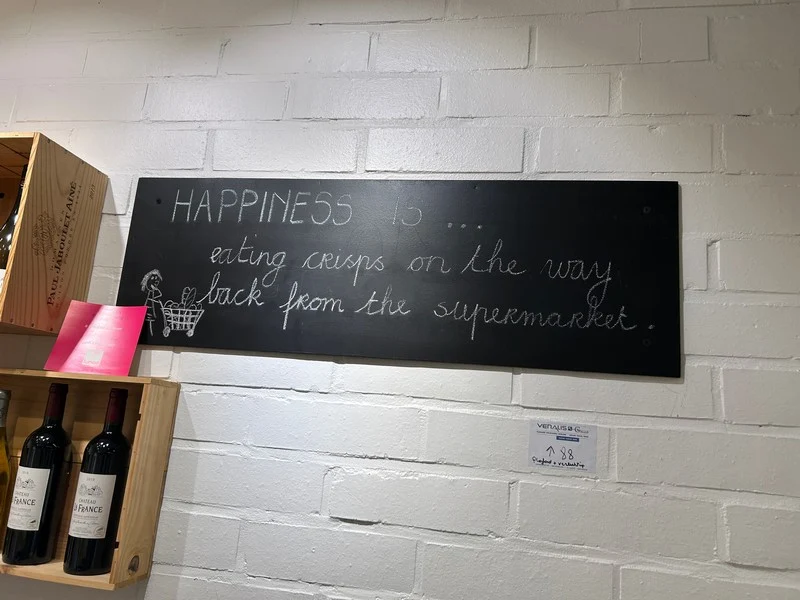 HAPPINESS IS ...
eating crisps on the way
back from the supermarket.
PAUL JABOULET AINÉ
VENALIS
↑ 88
CHATEAU
FRANCE
CHATEAU
D FRANCE